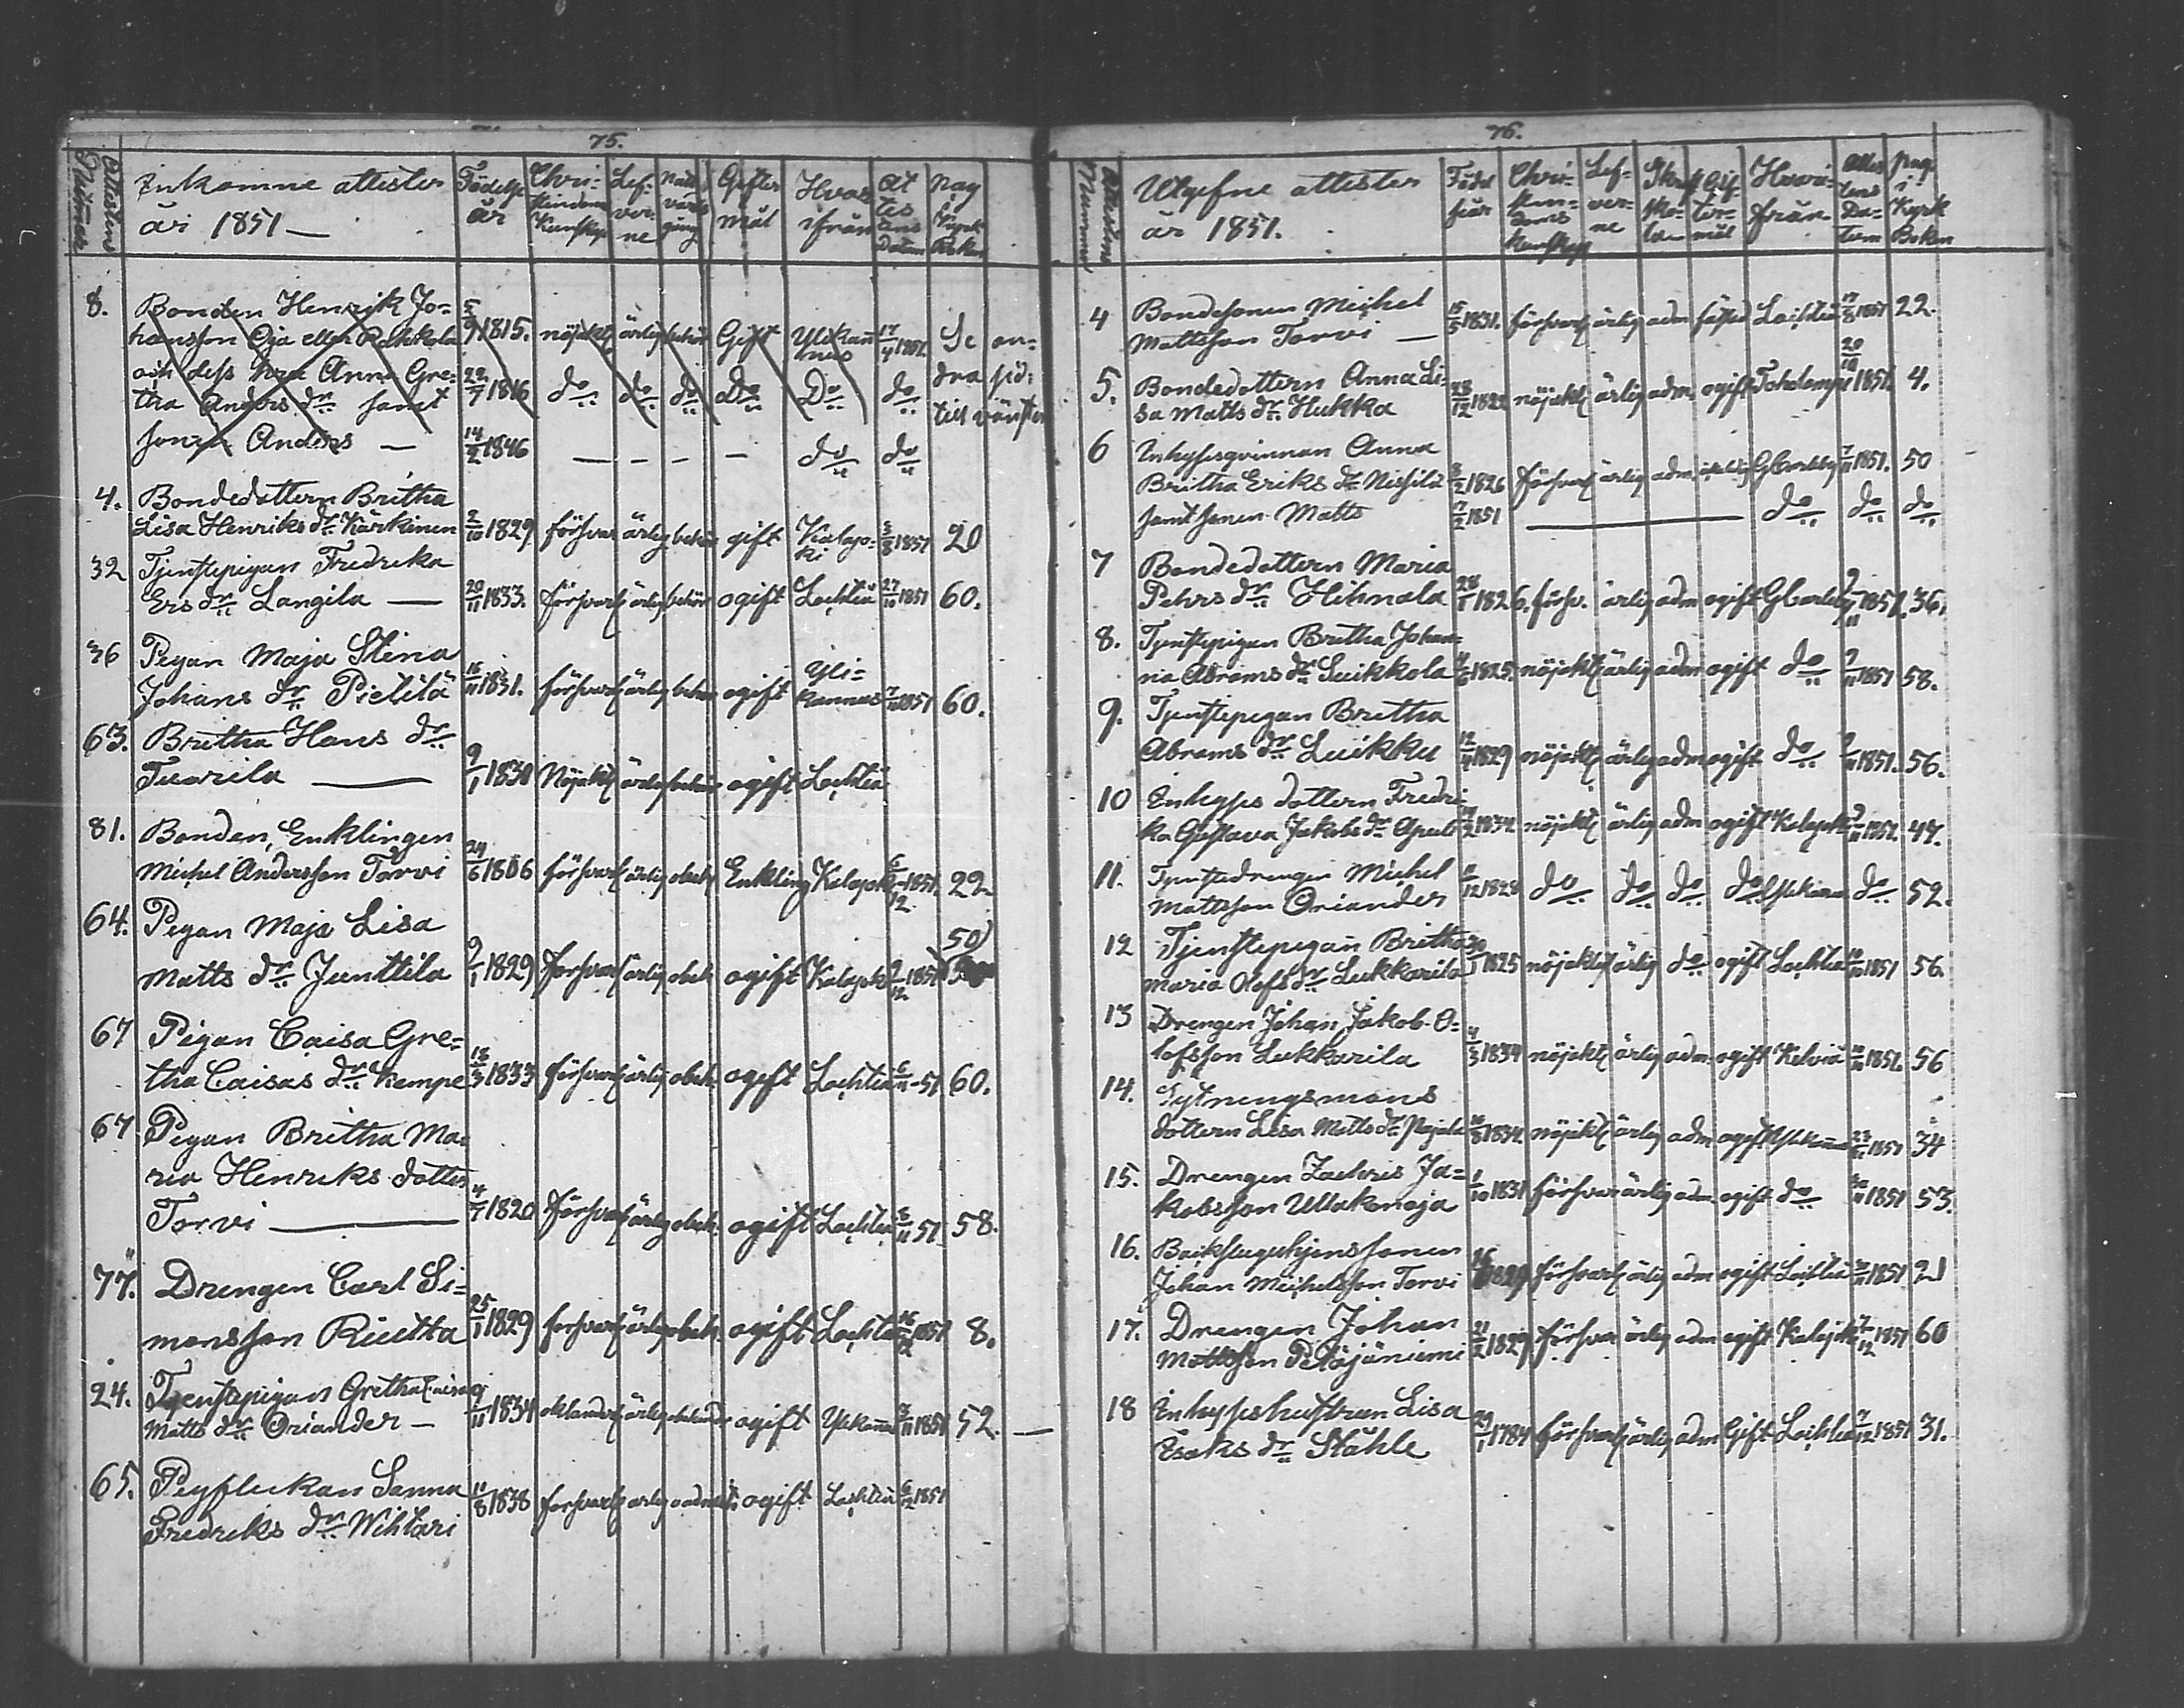 75.
Attestens Nummer
Inkomne attester
år 1851 —
Födelse
år
Chri-
stindoms
Kunskap
Lef-
ver-
ne
Natt-
vards
gång
Gifter
mål
Hvar
ifrån
At
tes
tens
Datum
Pag
i
Kyrk
Boken
8. Bonden Henrik Jo-
hansson Oja eller Rahkola 5/9 1815. nöjaktl ärlig behör Gift Ylikan
nus 17/4 1851. Se an-
och dess hru Anna Gre-
tha Anders dr samt 22/7 1816 do do do do Do do dra sid.
till vänster
sonen Anders — 14/2 1846 — — — — do do
4. Bondedottern Britha
Lisa Henriks dr Kärkinen 2/10 1829 försvar ärlig behör gift Kalajo-
ki 3/8 1851 20
32 Tjenstepigan Fredrika
Ers dr Langila — 20/11 1833. försvarl ärlig behör ogift Lochteå 27/10 1851 60.
36 Pigan Maja Stina
Johans dr Pietilä 16/11 1831. försvarl ärlig behör ogift Yli-
kannus 7/11 1851 60.
63. Britha Hans dr
Tuorila — 9/1 1830 Nöjaktl ärlig behör ogift Lochteå
81. Bonden, Enklingen
Michel Andersson Torvi 24/6 1806 försvarl ärlig obeh Enkling Kalajok 6/12 1851. 22.
64. Pigan Maja Lisa
Matts dr Junttila 9/1 1829 försvarl ärlig obeh ogift Kalajok 9/12 1851 50
67 Pigan Caisa Gre-
tha Caisas dr Kempe 18/3 1833 försvarl ärlig obeh. ogift Lochteå 6/11 -51 60.
67 Pigan Britha Ma-
ria Henriks dotter
Torvi — 4/7 1820 försvarl ärlig obeh. ogift Lochteå 8/11 51 58.
77. Drengen Carl Si-
monsson Riutta 25/1 1829 försvarl ärlig obeh. ogift Lochteå 16/12 1851 8.
24. Tjenstepigan Gretha Caisa
Matts dr Oriander — 9/11 1834 oklandr ärlig obehindr ogift Ylikannus 7/11 1851 52. —
65. Pigflickan Sanna
Fredriks dr Wihtari 11/8 1838 försvarl ärlig oadmit ogift Lochteå 6/12 1851
76.
Attestens Nummer
Utgifne attester
år 1851.
Födel
seår
Chri-
sten-
doms
kunskap
Lef-
ver-
ne
Gif-
ter-
mål
Hvari-
från
Attes
tens
Da-
tum
pag
i
Kyrk
Boken
4 Bondesonen Michel
Mattsson Torvi — 15/5 1831. försvarl ärlig adm fästad Lochteå 17/8 1851 22.
5. Bondedottern Anna Li-
sa Matts dr Hukka 1822 nöjaktl ärlig adm. ogift Toholampi 20/10 1851. 4.
6 Inhysesqvinnan Anna
Britha Eriks dr Nissilä 8/2 1826 försvarl ärlig adm. GCarleby 7/11 1851. 50
samt sonen Matts 17/2 1851 — do do do
7 Bondedottern Maria
Pehrs dr Hihnala 28/1 1826. försv. ärlig adm ogift GCarleby 9/11 1851. 36.
8. Tjenstepigan Britha Johan-
na Abrams dr Luikkola 1825. nöjaktl ärlig adm ogift do 9/11 1851 58.
9. Tjenstepigan Britha
Abrams dr Luikku 12/4 1829 nöjaktl ärlig adm ogift do 9/11 1851. 56.
10 Inhyses dottern Fredri
ka Gustava Jakobs dr 1834. nöjaktl ärlig adm ogift Kalajoki 9/11 1851. 47.
11. Tjenstedrengen Michel
Mattsson Oriander 1828 do do do do Ylikannus do 52.
12 Tjenstepigan Britha
Maria Olofs dr Lukkarila 30/1 1825 nöjaktl ärlig do ogift Lochteå 1851 56.
13 Drengen Johan Jakob O-
lofsson Lukkarila 4/3 1834 nöjaktl ärlig adm ogift Kelviå 1851. 56
14. Gytningsmans
dottern Lisa Matts dr Pajala 1832. nöjaktl ärlig adm ogift Ylikannus 23/11 1851 34
15. Drengen Zachris Ja-
kobsson Ullakonoja 1/10 1831 försvar ärlig adm. ogift do 30/11 1851 53.
16. Backstuguhjonssonen
Johan Michelsson Torvi försvarl ärlig adm ogift Lochteå 1851 21
17. Drengen Johan
Mattsson Petäjäniemi 21/2 1829 försvar ärlig adm ogift Kalajok 7/12 1851 60
18 Inhyseshustrun Lisa
Isaks dr Ståhle 29/1 1784 försvarl ärlig adm Gift Lochteå 7/12 1851 31.